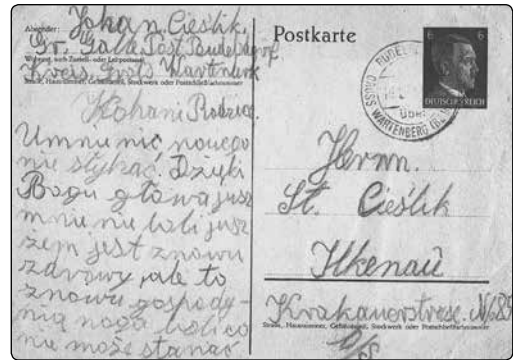 Absender: Johan. Cieślik.
Gr. Gale. Post Budelsdorf
Wohnort, auch Zustell- oder Leitpostamt
Kreis, Groß Wartenberk
Straße, Hausnummer, Gebäudeteil, Stockwerk oder Postschließfachnummer
Kohani Rodzice.
Umnie nic nowego
nie stykać. Dzięki
Bogu głowa jusz
mnie nie boli jusz
żem jest znowu
zdrowy, ale to
znowu gospody-
nią noga boli co
nie może stanać
Postkarte
6 6
DEUTSCHES REICH
über
GROSS WARTENBERG
Herrn.
St. Cieślik
Ilkenau
Krakauerstrese. No 85
Straße, Hausnummer, Gebäudeteil, Stockwerk oder Postschließfachnummer
O/S